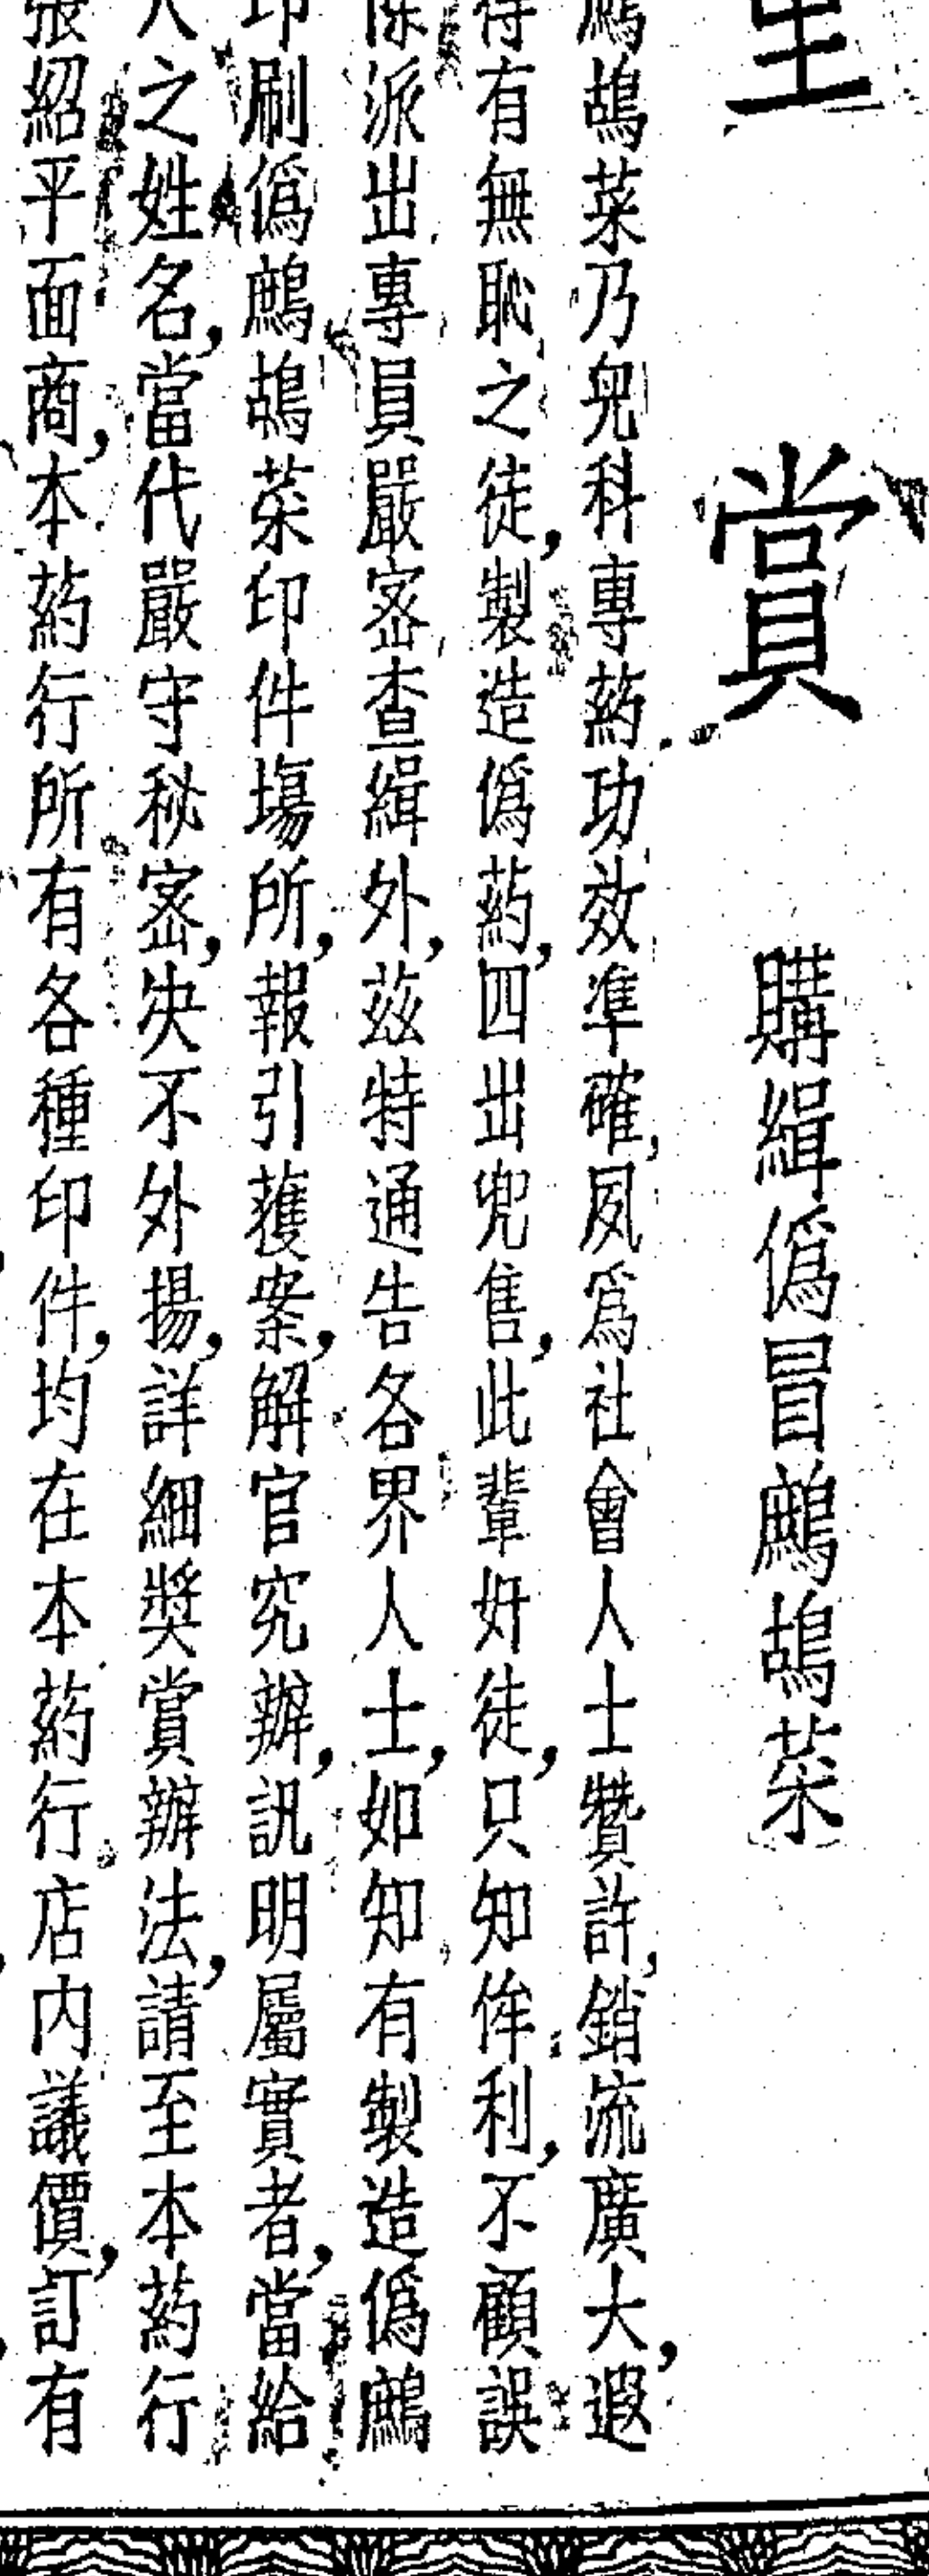 賞 購緝僞冒鷓鴣菜
鴣菜乃兒科專葯功效準確,夙爲社會人士贊許,銷流廣大,遐
有無恥之徒,製造僞葯,四出兜售,此輩奸徒,只知侔利,不顧誤
派出專員嚴密查緝外,茲特通告各界人士,如知有製造僞鷓
印刷僞鷓鴣菜印件塲所,報引獲案,解官究辦,訊明屬實者,當給
人之姓名,當代嚴守秘密,决不外揚,詳細奬賞辦法,請至本葯行
張紹平面商,本葯行所有各種印件,均在本葯行店内議價,訂有